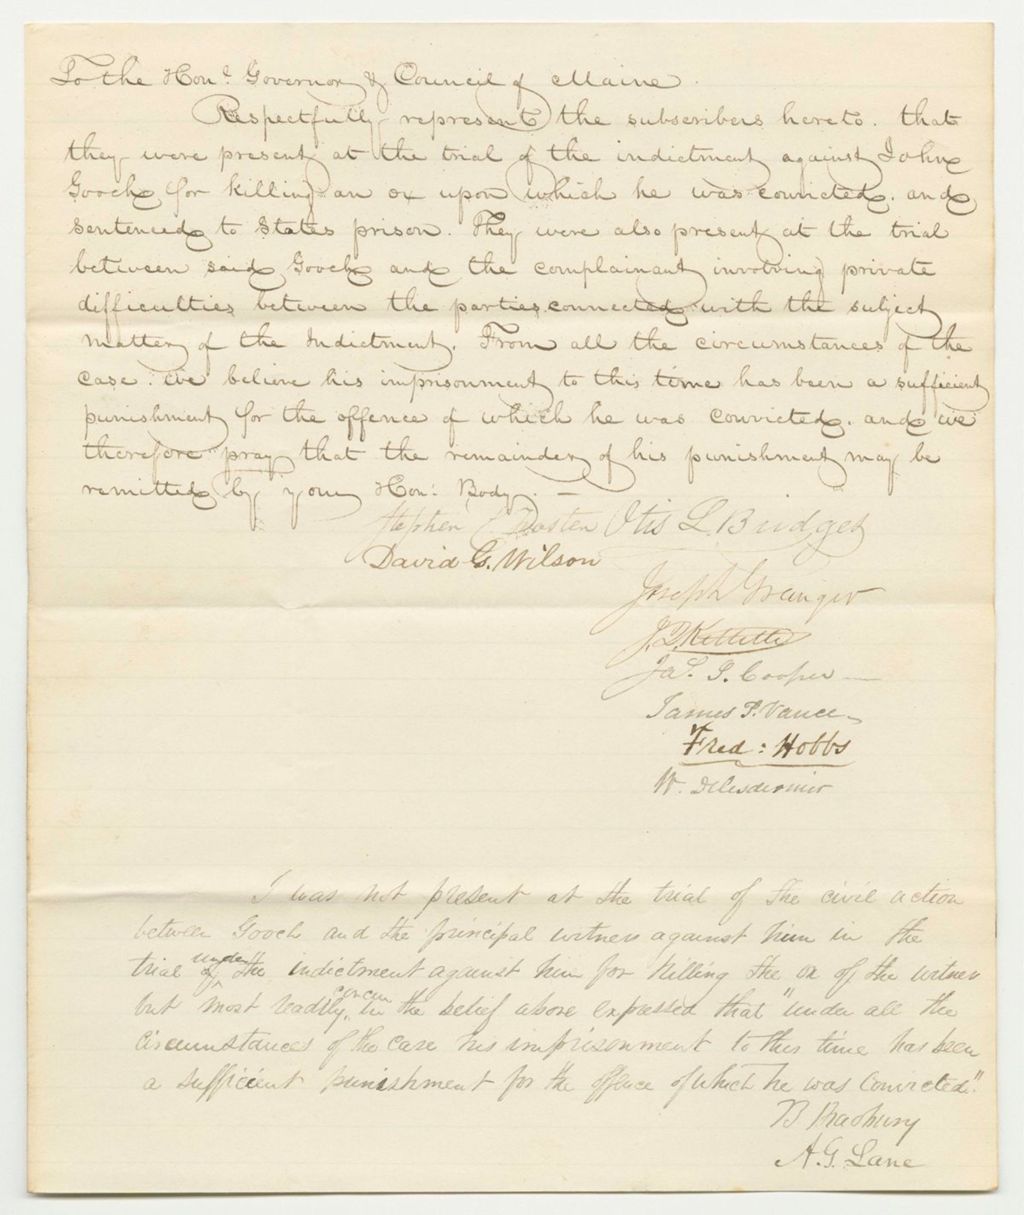 To the Hon.l Governor & Council of Maine.
Respectfully represents the subscribers hereto. that
they were present at the trial of the indictment against John
Gooch for killing an ox upon which he was convicted. and
sentenced to States prison. They were also present at the trial
between said Gooch and the complainant involving private
difficulties between the parties connected with the subject
matter of the Indictment. From all the circumstances of the
case. we believe his imprisonment to this time has been a sufficient
punishment for the offence of which he was convicted. and we
therefore pray that the remainder of his punishment may be
remitted by your Hon: Body. —
Stephen Otis L. Bridges
David G. Wilson
Joseph Granger
Jas. S. Cooper —
James P. Vance
Fred: Hobbs
W.
I was not present at the trial of the civil action
between Gooch and the principal witness against him in the
trial under the indictment against him for killing the ox of the witness
but most readily concur in the belief above expressed that "under all the
circumstances of the case his imprisonment to this time has been
a sufficient punishment for the offence of which he was convicted."
B Bradbury
A. G. Lane